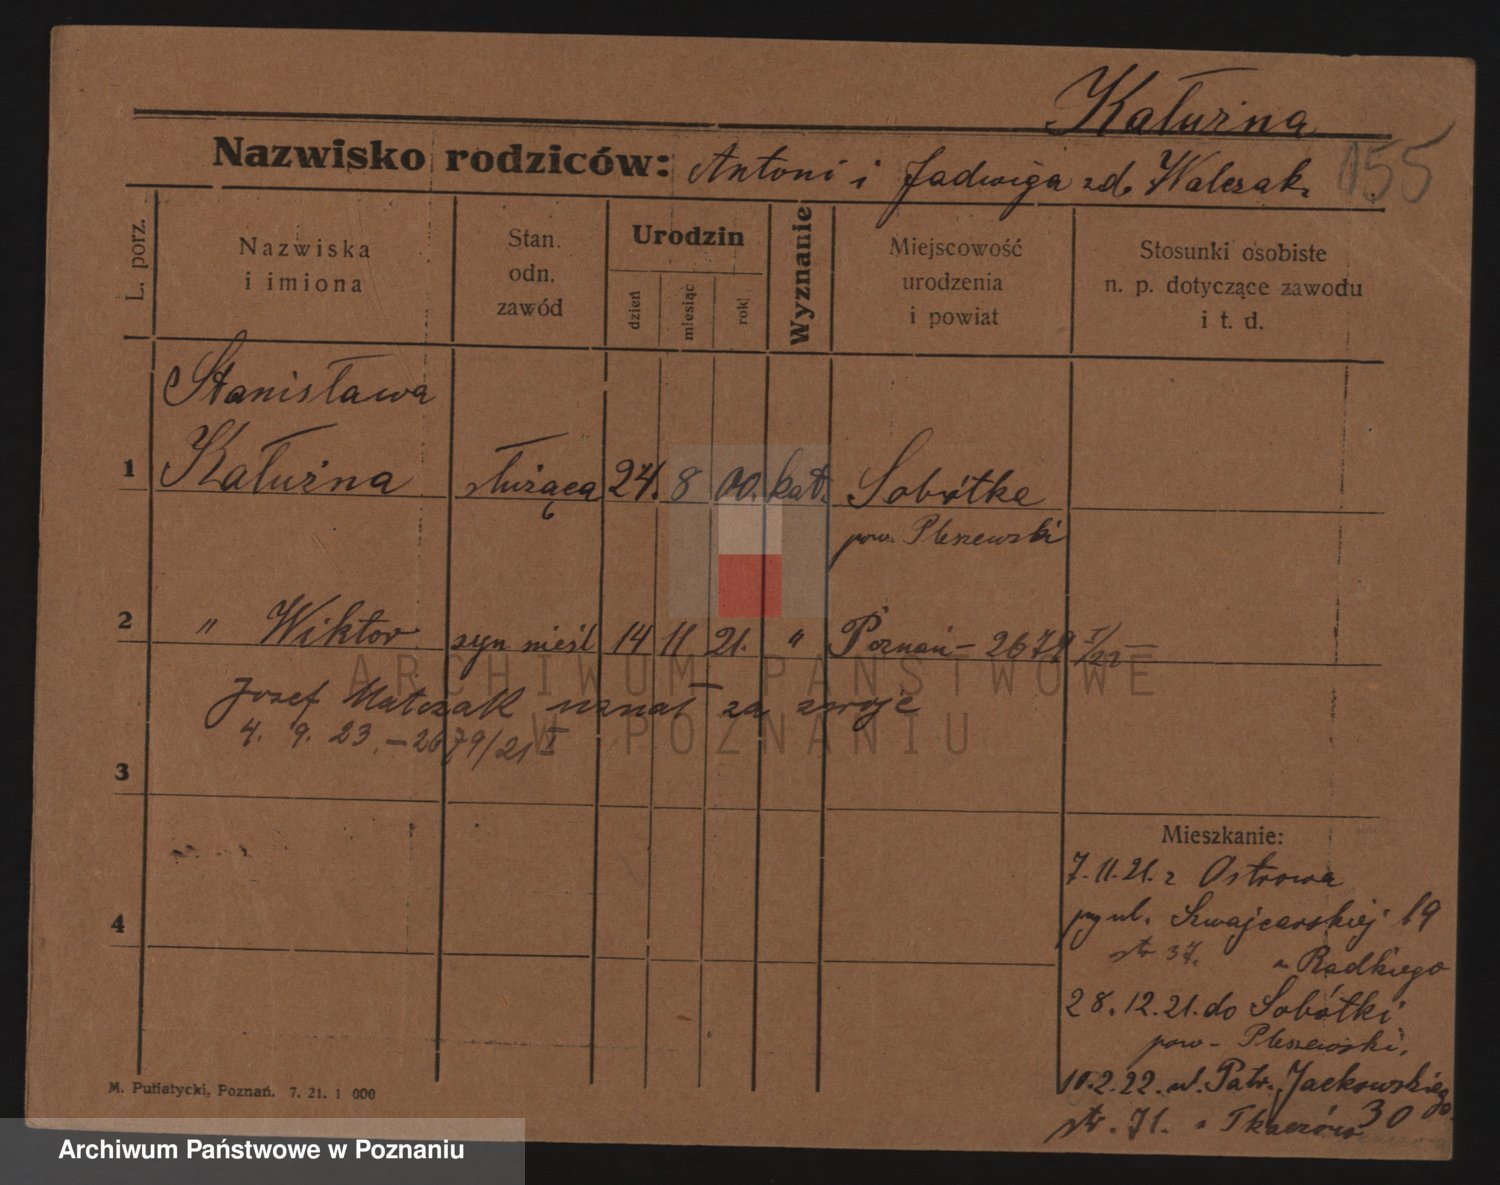 Kałużna
Nazwisko rodziców: Antoni i Jadwiga zd. Walczak.
155
L. porz.
Nazwiska
i imiona
Stan.
odn.
zawód
Urodzin
dzień
miesiąc
rok
Wyznanie
Miejscowość
urodzenia
i powiat
Stosunki osobiste
n. p. dotyczące zawodu
i t. d.
Stanisława
1 Kałużna służąca 24. 8 00. kat. Sobótka
pow. Pleszewski
2 " Wiktor syn nieśl 14 11 21. " Poznań – 2679 I/22 –
Jozef Matczak uznał za swoje
4. 9. 23. – 2679/21 I
3
4
Mieszkanie:
7.11.21. z Ostrowa
przy ul. Szwajcarskiej 19
str 37. u Radkiego
28.12.21. do Sobótki
pow. Pleszewski.
10.2.22. ul. Patr. Jackowskiego
30
str. 71. u Tkaczów
M. Putiatycki, Poznań. 7. 21. 1 000
ARCHIWUM PAŃSTWOWE
W POZNANIU
Archiwum Państwowe w Poznaniu